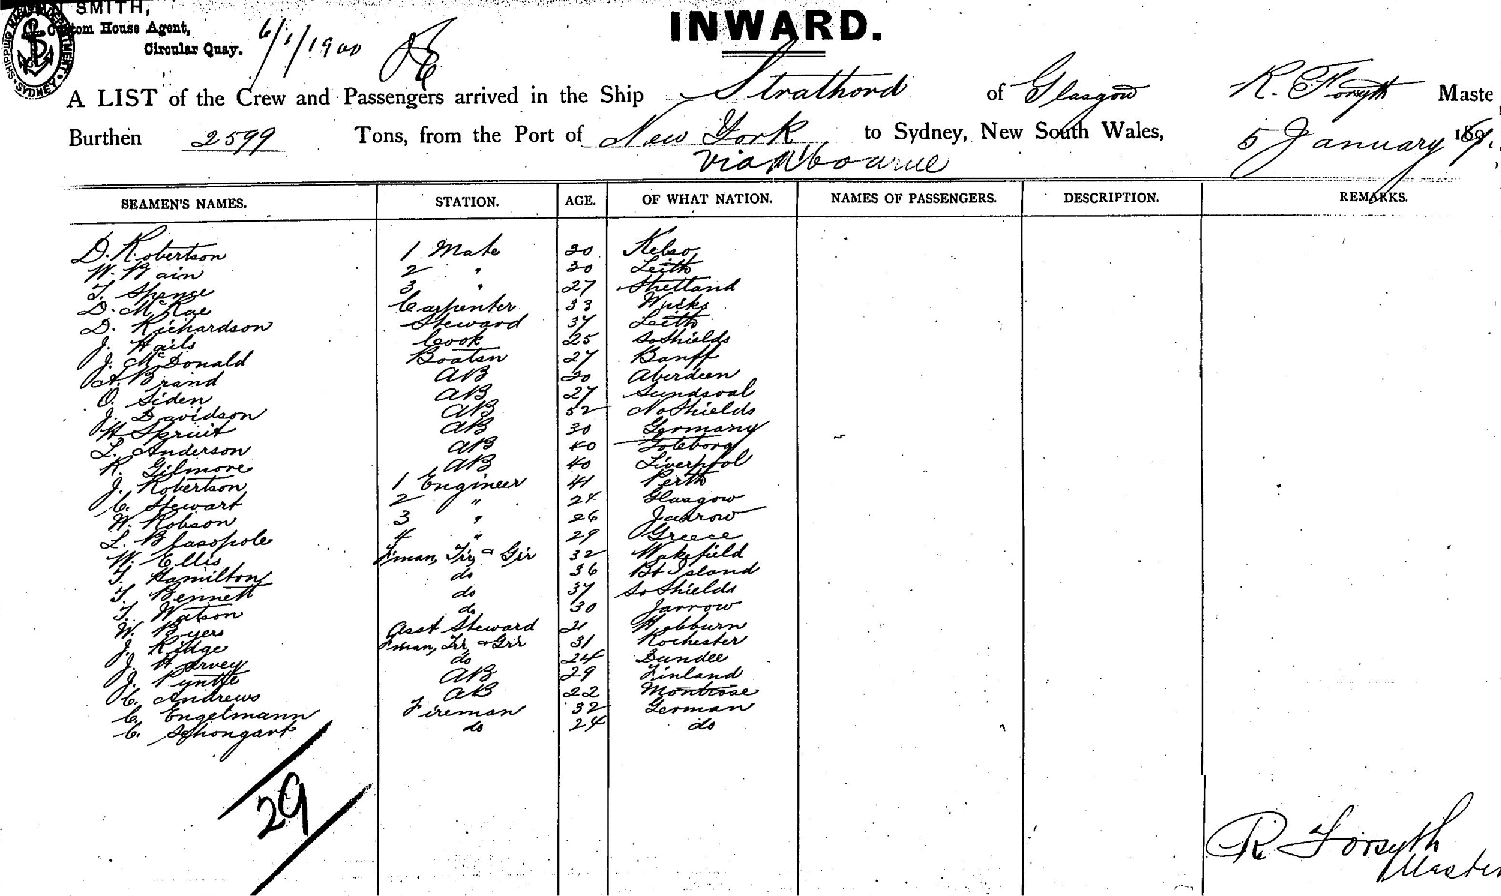 N SMITH,
Custom House Agent,
Circular Quay.
6/1/1900
INWARD.
A LIST of the Crew and Passengers arrived in the Ship Strathord of Glasgow R. Forsyth Maste
Burthen 2599 Tons, from the Port of New York to Sydney, New South Wales, 5 January 189
via Mbourne
SEAMEN'S NAMES. STATION. AGE. OF WHAT NATION. NAMES OF PASSENGERS. DESCRIPTION. REMARKS.
D. Robertson 1 Mate 30 Kelso
W. Bain 2 " 30 Leith
T. Spence 3 " 27 Shetland
D. McRae Carpenter 33 Wick
D. Richardson Steward 37 Leith
J. Hails Cook 25 So Shields
J. McDonald Boatsn 27 Banff
A. Brand AB 20 Aberdeen
O. Siden AB 27 Sundsval
J. Davidson AB 52 No Shields
H Spruit AB 30 Germany
L. Anderson AB 40 Goteborg
R. Gilmore AB 40 Liverpool
J. Robertson 1 Engineer 41 Perth
C. Stewart 2 " 24 Glasgow
W. Robson 3 " 26 Jarrow
L. Blasopole 4 " 29 Greece
W. Ellis Fman, Trr & Grr 32 Wakefield
T. Hamilton do 36 Bt Island
T. Bennett do 37 So Shields
T. Watson do 30 Jarrow
W. Byers Asst Steward 21 Hebburn
J. Ridge Fman, Trr & Grr 31 Rochester
J. Harvey do 24 Dundee
J. Pyntte AB 29 Finland
C. Andrews AB 22 Montrose
C. Engelmann Fireman 32 German
C. Schongart do 24 do
29
R Forsyth
Master